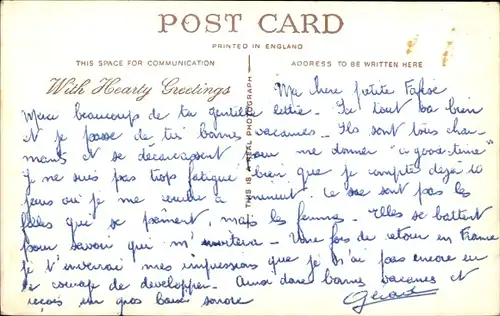 POST CARD
PRINTED IN ENGLAND
THIS SPACE FOR COMMUNICATION
ADDRESS TO BE WRITTEN HERE
With Hearty Greetings
THIS IS A REAL PHOTOGRAPH
Ma chère petite
Merci beaucoup de ta gentille lettre - Ici tout va bien
et je passe de très bonnes vacances - Ils sont tous char-
mants et se décarcassent pour me donner "a good time"
je ne suis pas trop fatigué bien que je compte déjà 10
jours où je me rends à ment. Ce ne sont pas les
filles qui se pament mais les femmes - Elles se battent
pour savoir qui m' - Une fois de retour en France
je t'enverrai mes impressions que je n'ai pas encore eu
le courage de developper - Amuse bonnes vacances et
reçois un gros baiser sonore
Gérard